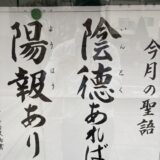 今月の聖語
陰徳あれば
いんとく
陽報あり
ようほう